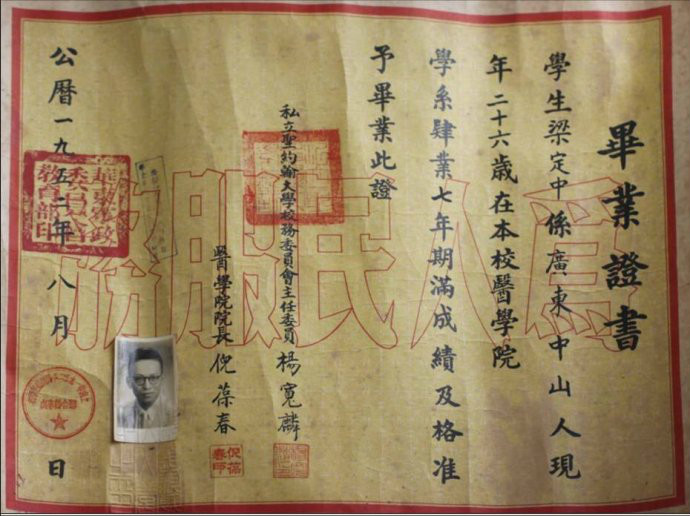 畢業證書
學生梁定中係廣東中山人現
年二十六歲在本校醫學院
學系肄業七年期滿成績及格准
予畢業此證
私立聖約翰大學校務委員會主任委員楊寬麟
醫學院院長倪葆春
倪葆春印
公曆一九五二年八月 日
華東軍政委員會教育部印
為人民服務